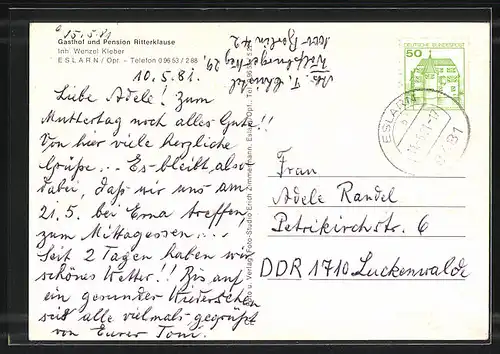 15.5.81
Gasthof und Pension Ritterklause
Inh. Wenzel Kleber
ESLARN / Opf. - Telefon 0 96 53 / 2 68
10.5.81.
Liebe Adele! Zum
Muttertag noch alles Gute!!
Von hier viele herzliche
Grüße... Es bleibt also
dabei, daß wir uns am
21.5. bei Erna treffen
zum Mittagessen...
Seit 2 Tagen haben wir
schönes Wetter!! Bis auf
ein gesundes Wiedersehen
seid alle vielmals gegrüßt
von Eurer Toni.
Abs. T.
29
1000 Berlin 42
Foto u. Verlag: Foto-Studio Erich Zimmermann, Eslarn/Opf., Tel.
DEUTSCHE BUNDESPOST
50
ESLARN
8481
Frau
Adele Randel
Petrikirchstr. 6
DDR 1710 Luckenwalde